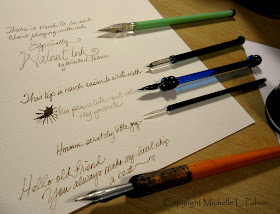 There is much to be said
about playing with ink
Especially
Walnut Ink
by Michelle Palmer
This tip is much easier to write with
This pen is
my favorite
Hmmm scratchy little guy
Hello old Friend
You always make my heart skip
a beat
Copyright Michelle L. Palmer